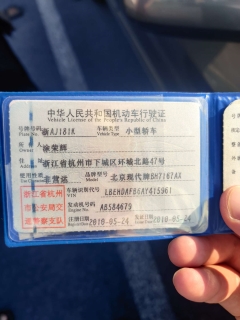 中华人民共和国机动车行驶证
Vehicle License of the People's Republic of China
号牌号码 浙AJ181K 车辆类型 小型轿车
Plate No. Vehicle Type
所有人 涂荣辉
住址 浙江省杭州市下城区环城北路47号
Address
使用性质 非营运 品牌型号 北京现代牌BH7167AX
Use Character Model
浙江省杭州
市公安局交
通警察支队
车辆识别代号 LBEHDAFB8AY415961
VIN
发动机号码 AB584679
Engine No.
注册日期 2010-05-24 发证日期 2010-05-24